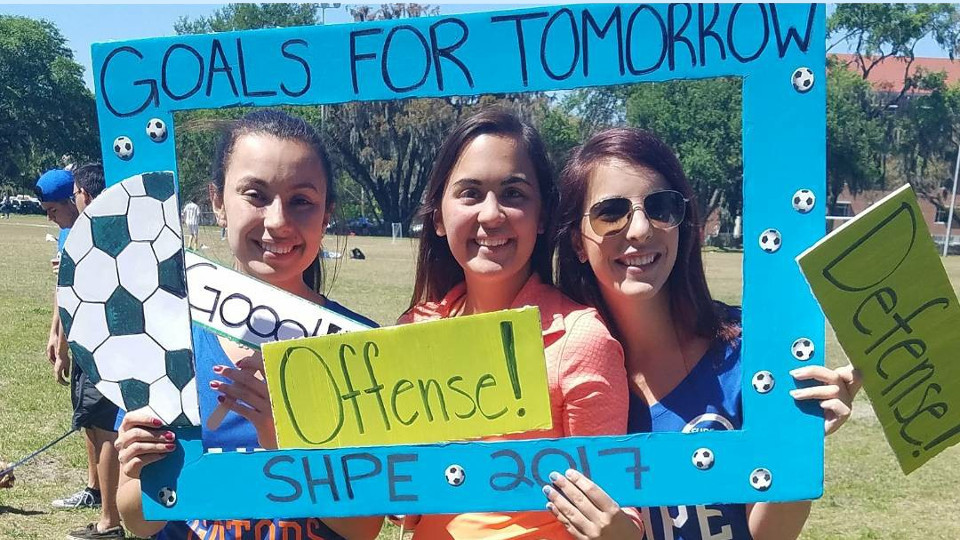 GOALS FOR TOMORROW
Gooo!!
Offense!
Defense!
SHPE 2017
GATORS